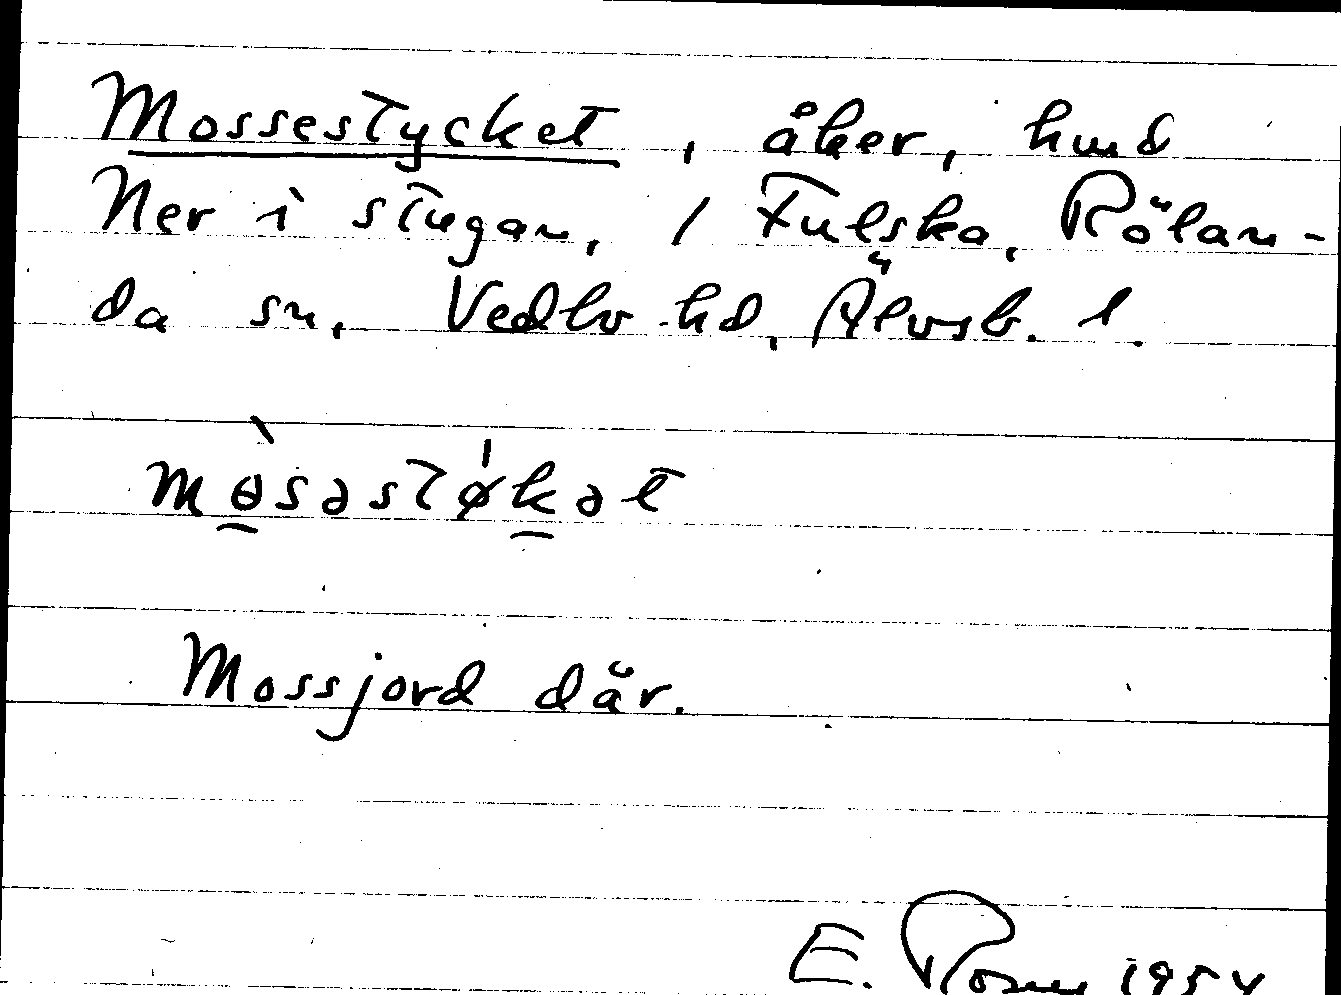 Mossestycket, åker, hmd
Ner i stugan, 1 Fulska, Rölan-
da sn, Vedbo hd, Älvsb. l.
mɵ̀səstǿkət
Mossjord där.
E. 195